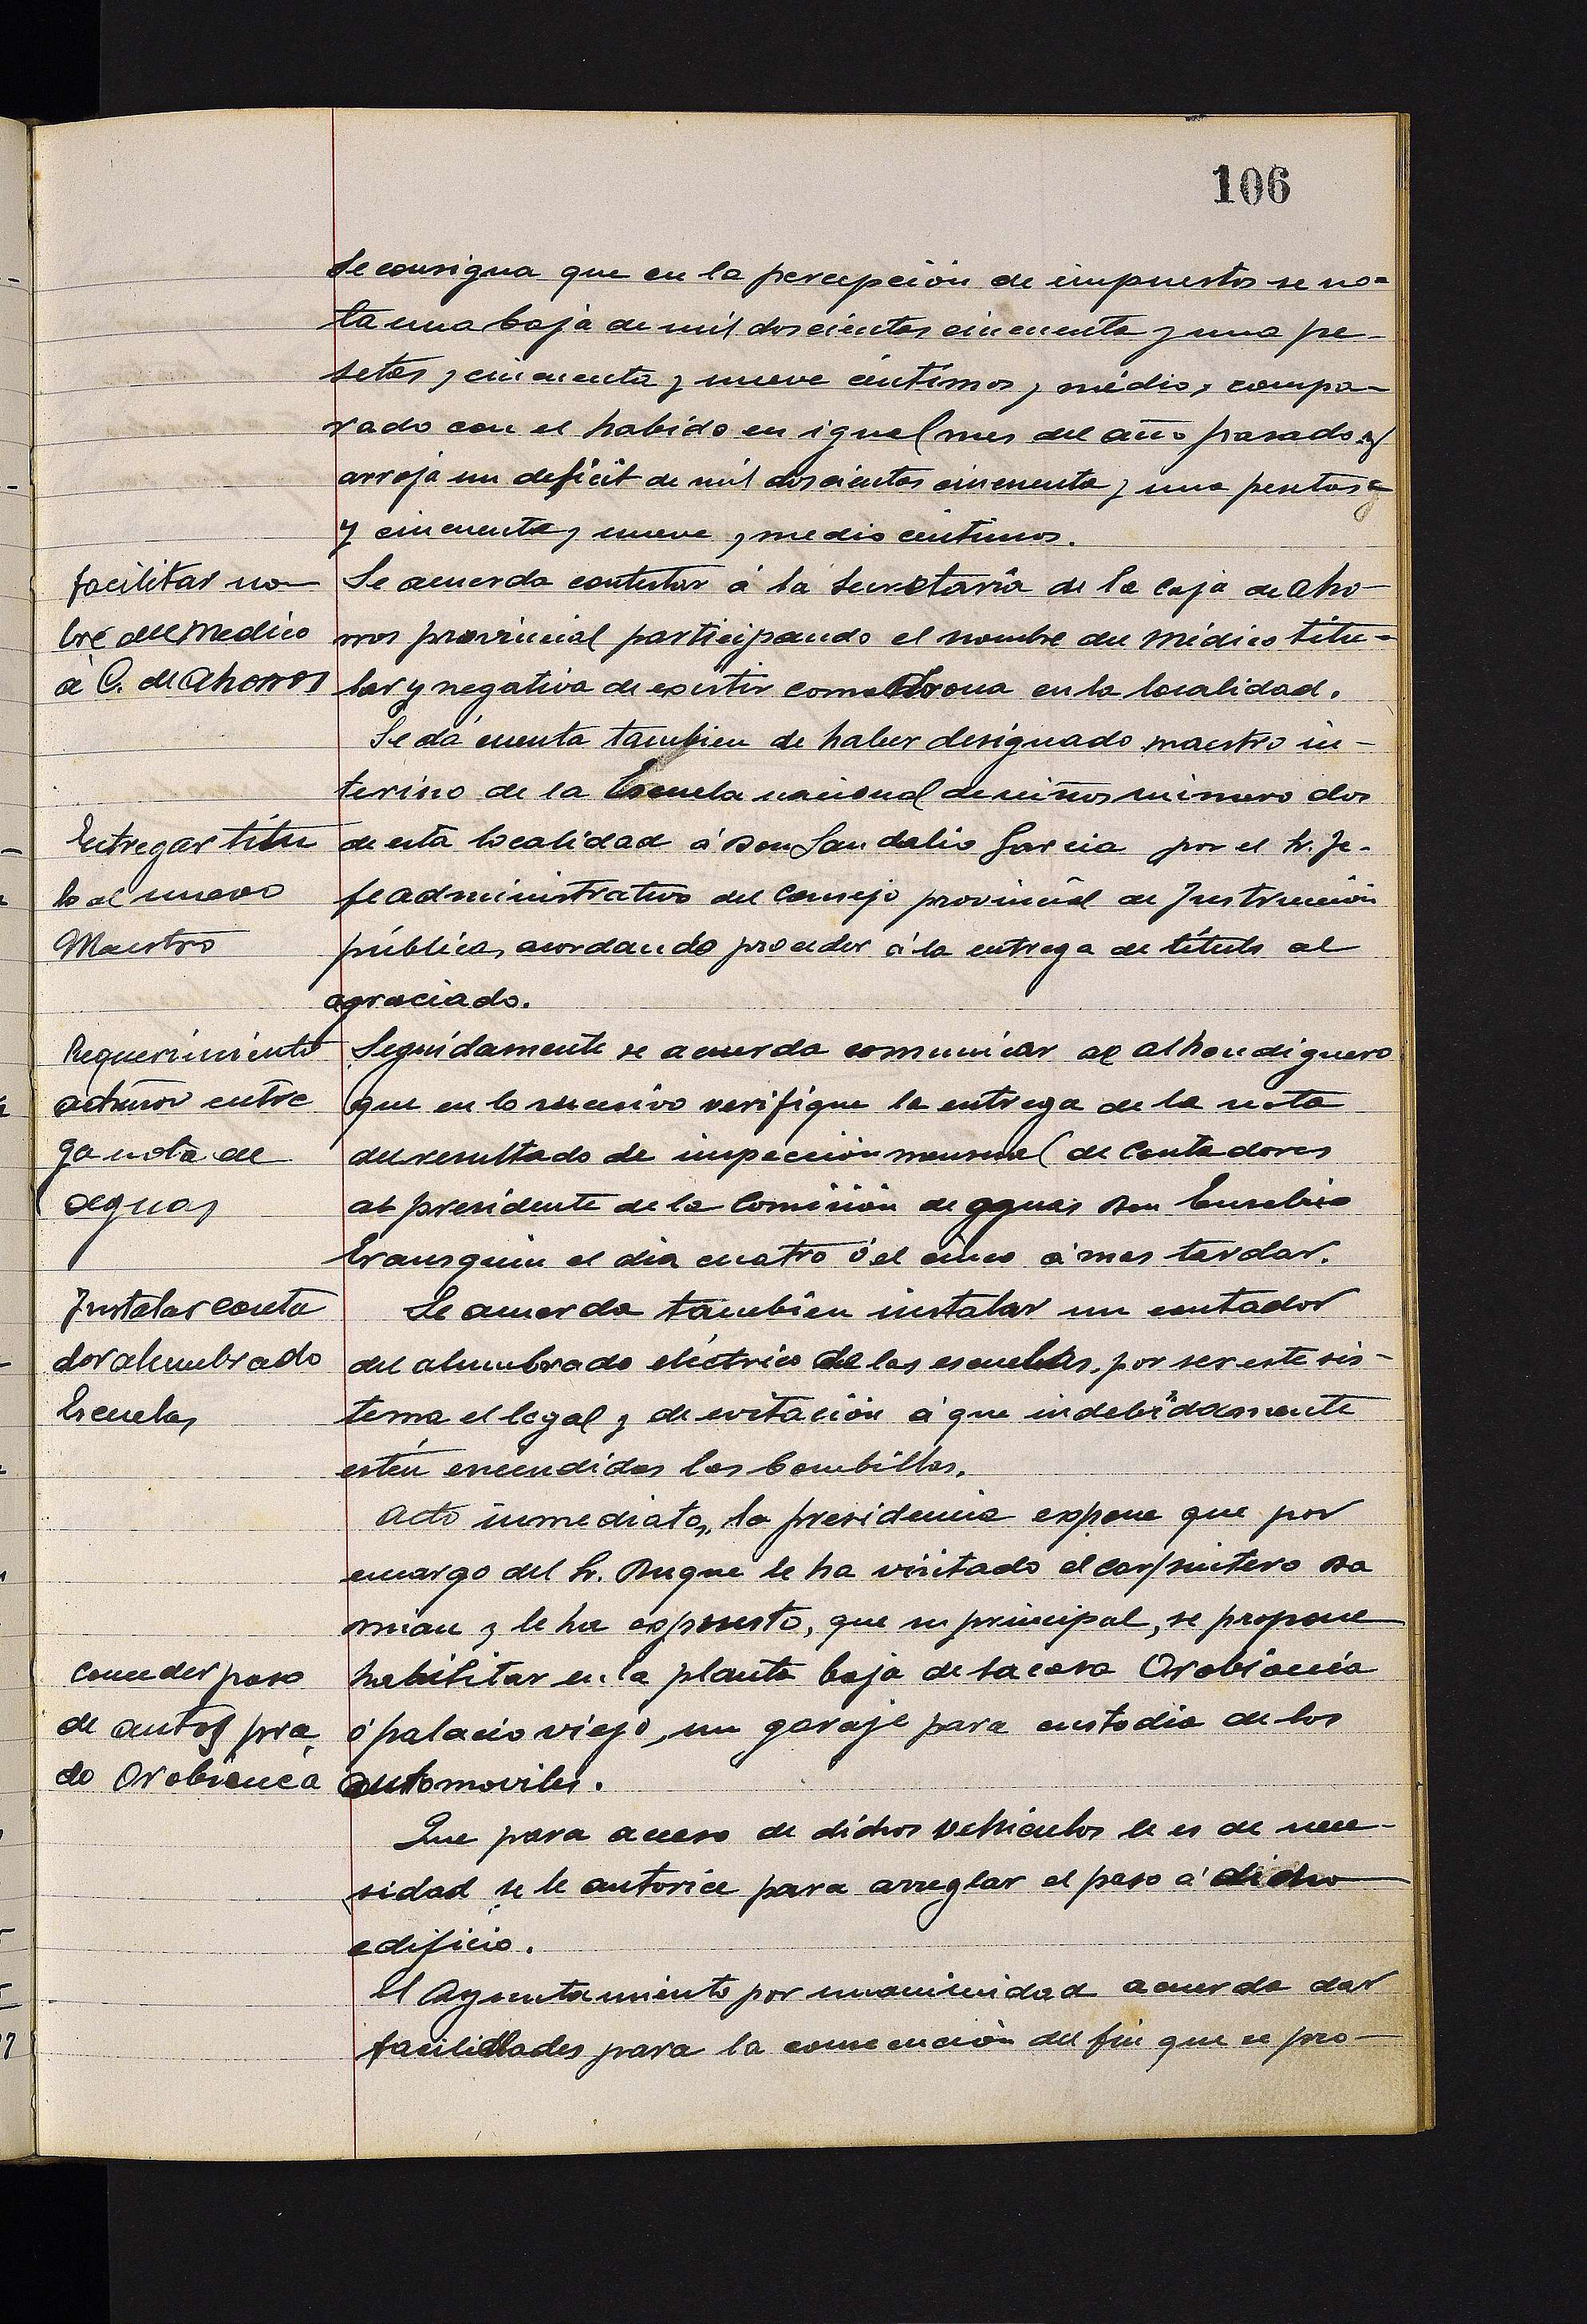 106
Se consigna que en la percepción de impuestos se no-
ta una baja de mil doscientas cincuenta y una pe-
setas y cincuenta y nueve céntimos y médio, compa-
rado con el habido en igual mes del año pasado y
arroja un deficit de mil doscientas cincuenta y una pesetas
y cincuenta y nueve y medio céntimos.
facilitar nom
bre del medico
a C. de Ahorros
Se acuerda contestar á la Secretaría de la Caja de Aho-
rros provincial participando el nombre del médico titu-
lar y negativa de existir comadrona en la localidad.
Se dá cuenta tambien de haber designado maestro in-
terino de la Escuela nacional de niños número dos
Entregar títu
lo al nuevo
Maestro
de esta localidad á Don Sandalio Garcia por el Sr. Je-
fe administrativo del Consejo provincial de Instrucción
pública, acordando proceder á la entrega de título al
agraciado.
Requerimiento
entre
ga nota de
aguas
Seguidamente se acuerda comunicar al alhondiguero
que en lo sucesivo verifique la entrega de la nota
del resultado de inspección mensual de Contadores
al presidente de la Comisión de aguas Don Eusebio
Erausquin el dia cuatro ó el cinco á mas tardar.
Instalar conta
dor alumbrado
Escuelas
Se acuerda tambien instalar un contador
del alumbrado eléctrico de las escuelas, por ser este sis-
tema el legal y de evitación á que indebidamente
estén encendidas las bombillas.
Acto inmediato, la presidencia expone que por
encargo del Sr. Duque le ha visitado el carpintero Da
mian y le ha expuesto, que su principal, se propone
Conceder paso
de autos pra
do Orobiancá
habilitar en la planta baja de la casa Orobiancá
ó palacio viejo, un garaje para custodia de los
automoviles.
Que para acceso de dichos vehiculos le es de nece-
sidad se le autorice para arreglar el paso á dicho
edificio.
El Ayuntamiento por unanimidad acuerda dar
facilidades para la consecución del fin que se pro-